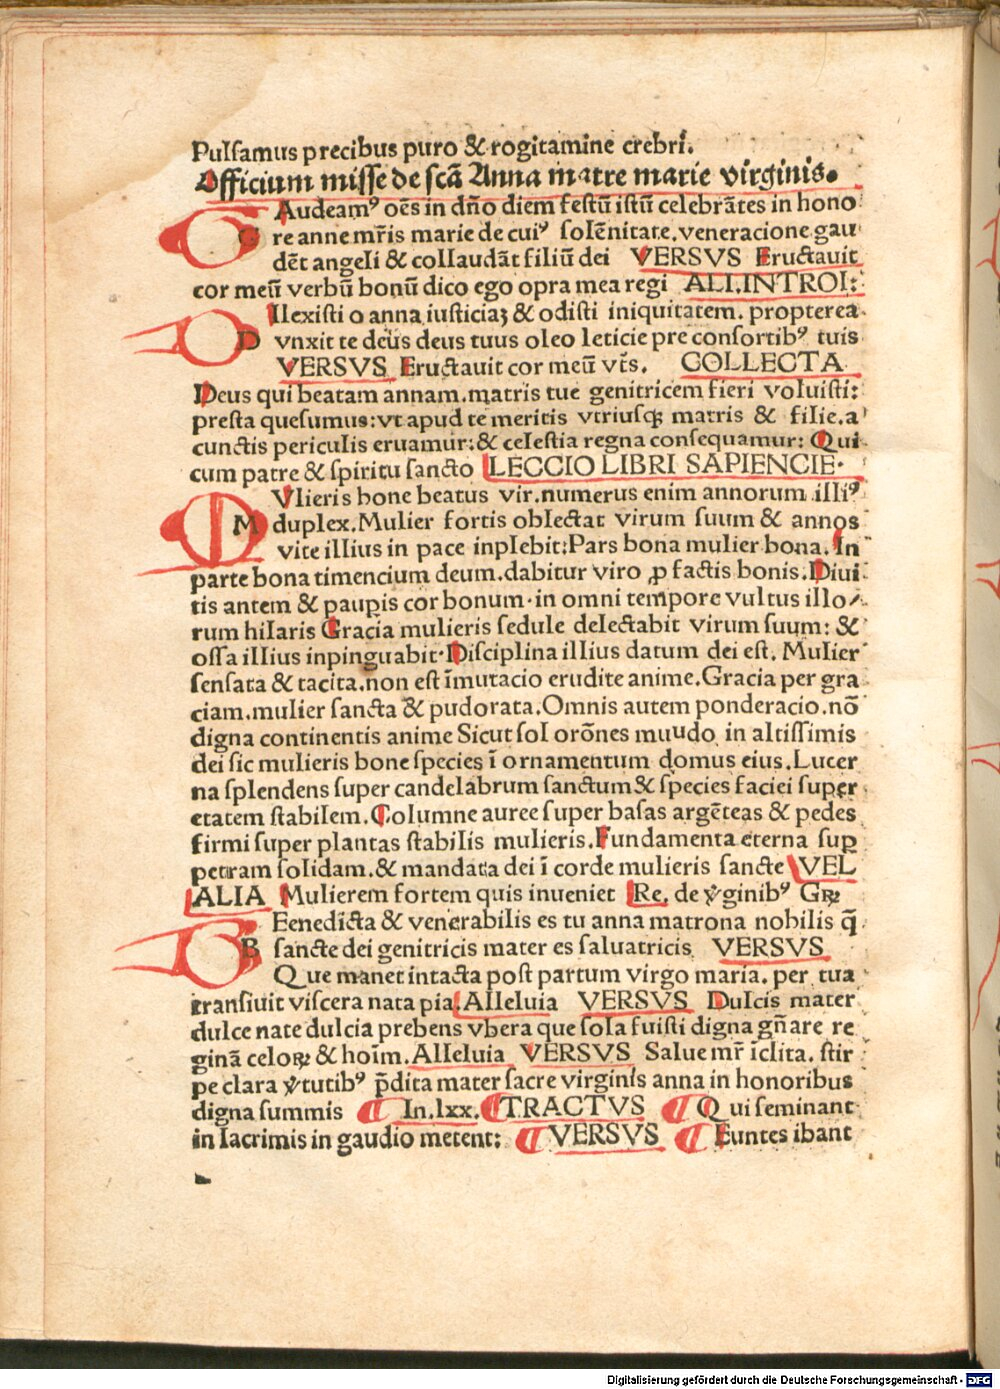 Pulsamus precibus puro & rogitamine crebri.
Officium misse de scã Anna matre marie virginis.
G Audeamꝰ oēs in dño diem festū istū celebrãtes in hono
re anne mr̃is marie de cuiꝰ solēnitate, veneracione gau
dēt angeli & collaudãt filiū dei VERSVS Eructauit
cor meū verbū bonū dico ego opra mea regi ALI.INTROI:
D Ilexisti o anna iusticiaȝ & odisti iniquitatem. propterea
vnxit te deus deus tuus oleo leticie pre consortibꝰ tuis
VERSVS Eructauit cor meū vt̃s. COLLECTA
Deus qui beatam annam.matris tue genitricem fieri voluisti:
presta quesumus:vt apud te meritis vtriusqꝫ matris & filie.a
cunctis periculis eruamur:& celestia regna consequamur: Qui
cum patre & spiritu sancto LECCIO LIBRI SAPIENCIE·
M Vlieris bone beatus vir.numerus enim annorum illiꝰ
duplex.Mulier fortis oblectat virum suum & annos
vite illius in pace inplebit:Pars bona mulier bona. In
parte bona timencium deum.dabitur viro ꝓ factis bonis.Diui
tis antem & paupis cor bonum·in omni tempore vultus illo/
rum hilaris Gracia mulieris sedule delectabit virum suum: &
ossa illius inpinguabit·Disciplina illius datum dei est. Mulier
sensata & tacita.non est īmutacio erudite anime.Gracia per gra
ciam.mulier sancta & pudorata.Omnis autem ponderacio.nõ
digna continentis anime Sicut sol orõnes muudo in altissimis
dei sic mulieris bone species ī ornamentum domus eius.Lucer
na splendens super candelabrum sanctum & species faciei super
etatem stabilem.Columne auree super basas argēteas & pedes
firmi super plantas stabilis mulieris.Fundamenta eterna suꝑ
petram solidam.& mandata dei ī corde mulieris sancte VEL
ALIA Mulierem fortem quis inueniet Re. de v̓ginibꝰ Gꝝ
B Eenedīcta & venerabilis es tu anna matrona nobilis q̃
sancte dei genitricis mater es saluatricis VERSVS
Que manet intacta post partum virgo maria. per tua
transiuit viscera nata pia.Alleluia VERSVS Dulcis mater
dulce nate dulcia prebens vbera que sola fuisti digna gñare re
ginã celoꝝ & hoīm.Alleluia VERSVS Salue mr̃ īclita. stir
pe clara v̓tutibꝰ p̃dita mater sacre virginis anna in honoribus
digna summis ¶ In.lxx. ¶ TRACTVS ¶ Qui seminant
in lacrimis in gaudio metent: ¶ VERSVS ¶ Euntes ibant
Digitalisierung gefördert durch die Deutsche Forschungsgemeinschaft - DFG